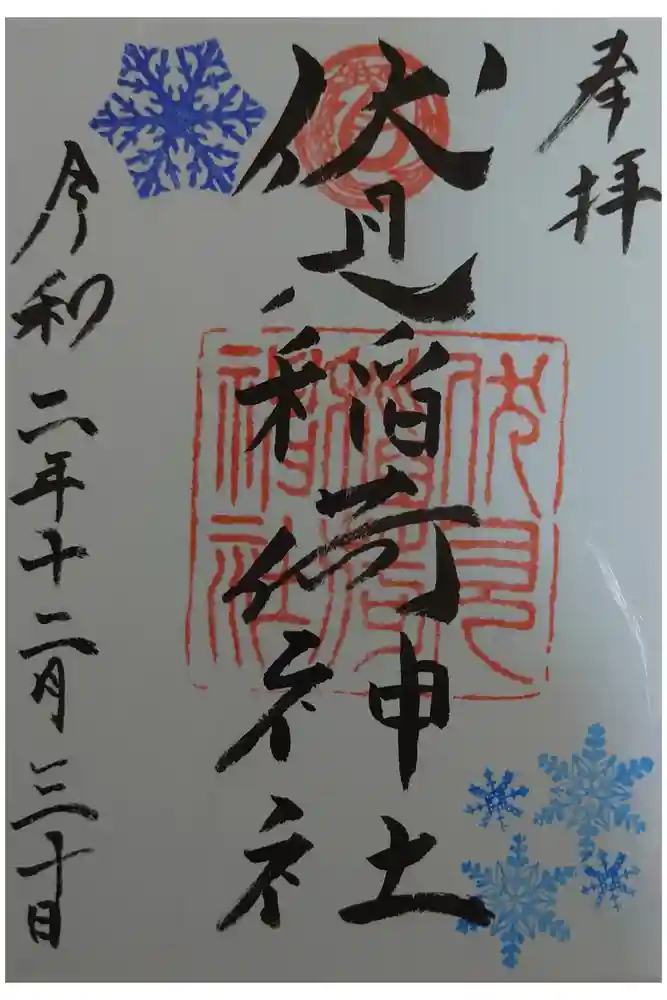 奉拝
伏見稲荷神社
伏見
稲荷
神社
令和二年十二月三十日